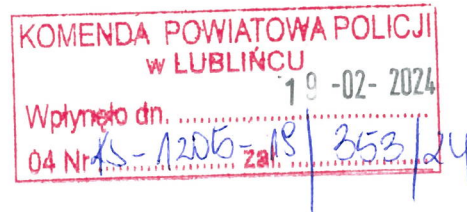 KOMENDA POWIATOWA POLICJI
w LUBLIŃCU
19 -02- 2024
Wpłynęło dn.
04 Nr 1205-19 zał. 353/24